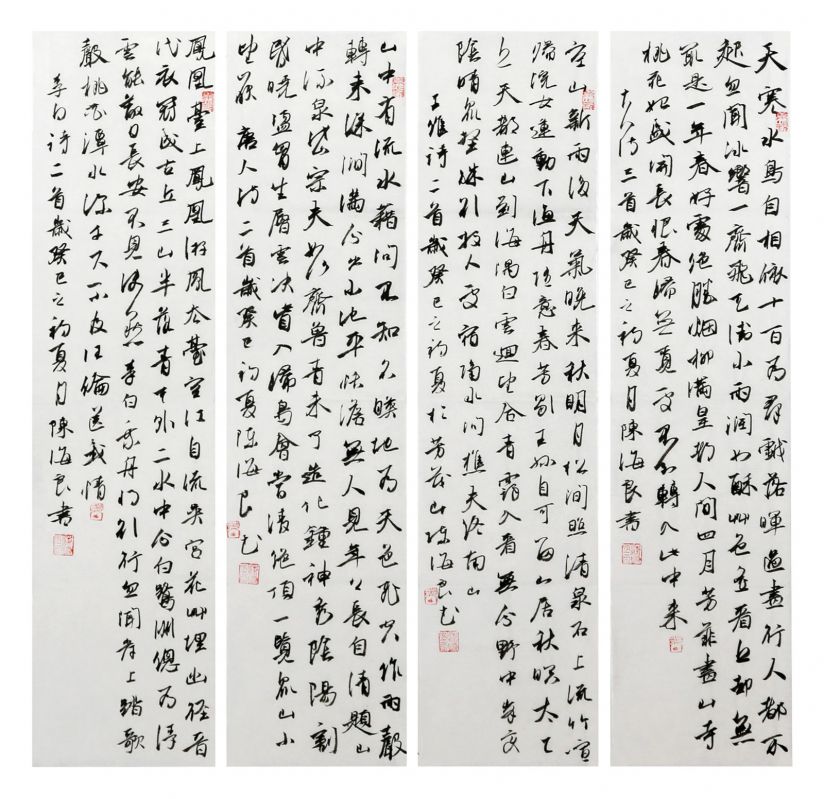 天寒水鳥自相依十百為群戲落暉過盡行人都不
起忽聞冰響一齊飛天街小雨潤如酥草色遙看近却無
最是一年春好處絕勝烟柳滿皇都人間四月芳菲盡山寺
桃花始盛開長恨春歸無覓處不知轉入此中來
古人詩三首歲癸巳之初夏月陳海良書
空山新雨後天氣晚來秋明月松間照清泉石上流竹喧
歸浣女蓮動下漁舟隨意春芳歇王孫自可留山居秋暝太乙
近天都連山到海隅白雲迴望合青靄入看無分野中峰變
陰晴眾壑殊欲投人處宿隔水問樵夫終南山
王維詩二首歲癸巳之初夏於芳茂山陳海良記
山中有流水藉問不知名映地為天色飛空作雨聲
轉來深澗滿分出小池平恬澹無人見年年長自清題山
中流泉岱宗夫如何齊魯青未了造化鍾神秀陰陽割
昏曉盪胸生層雲決眥入歸鳥會當凌絕頂一覽眾山小
望嶽唐人詩二首歲癸巳初夏陳海良記
鳳凰臺上鳳凰游鳳去臺空江自流吳宮花草埋幽徑晉
代衣冠成古丘三山半落青天外二水中分白鷺洲總為浮
雲能蔽日長安不見使人愁李白乘舟將欲行忽聞岸上踏歌
聲桃花潭水深千尺不及汪倫送我情
李白詩二首歲癸巳之初夏月陳海良書